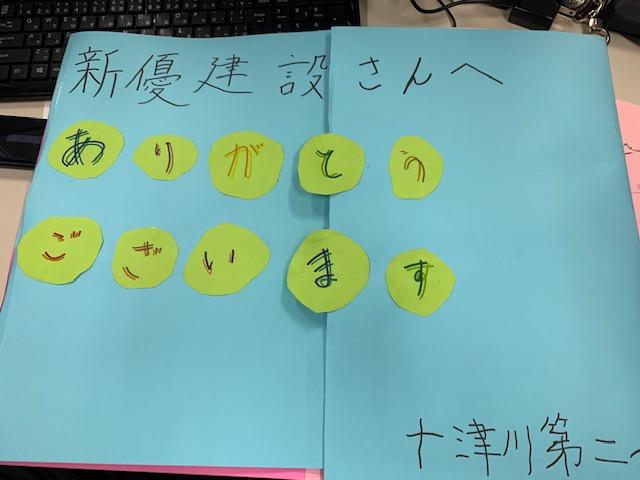 新優建設さんへ
ありがとう
ございます
十津川第二